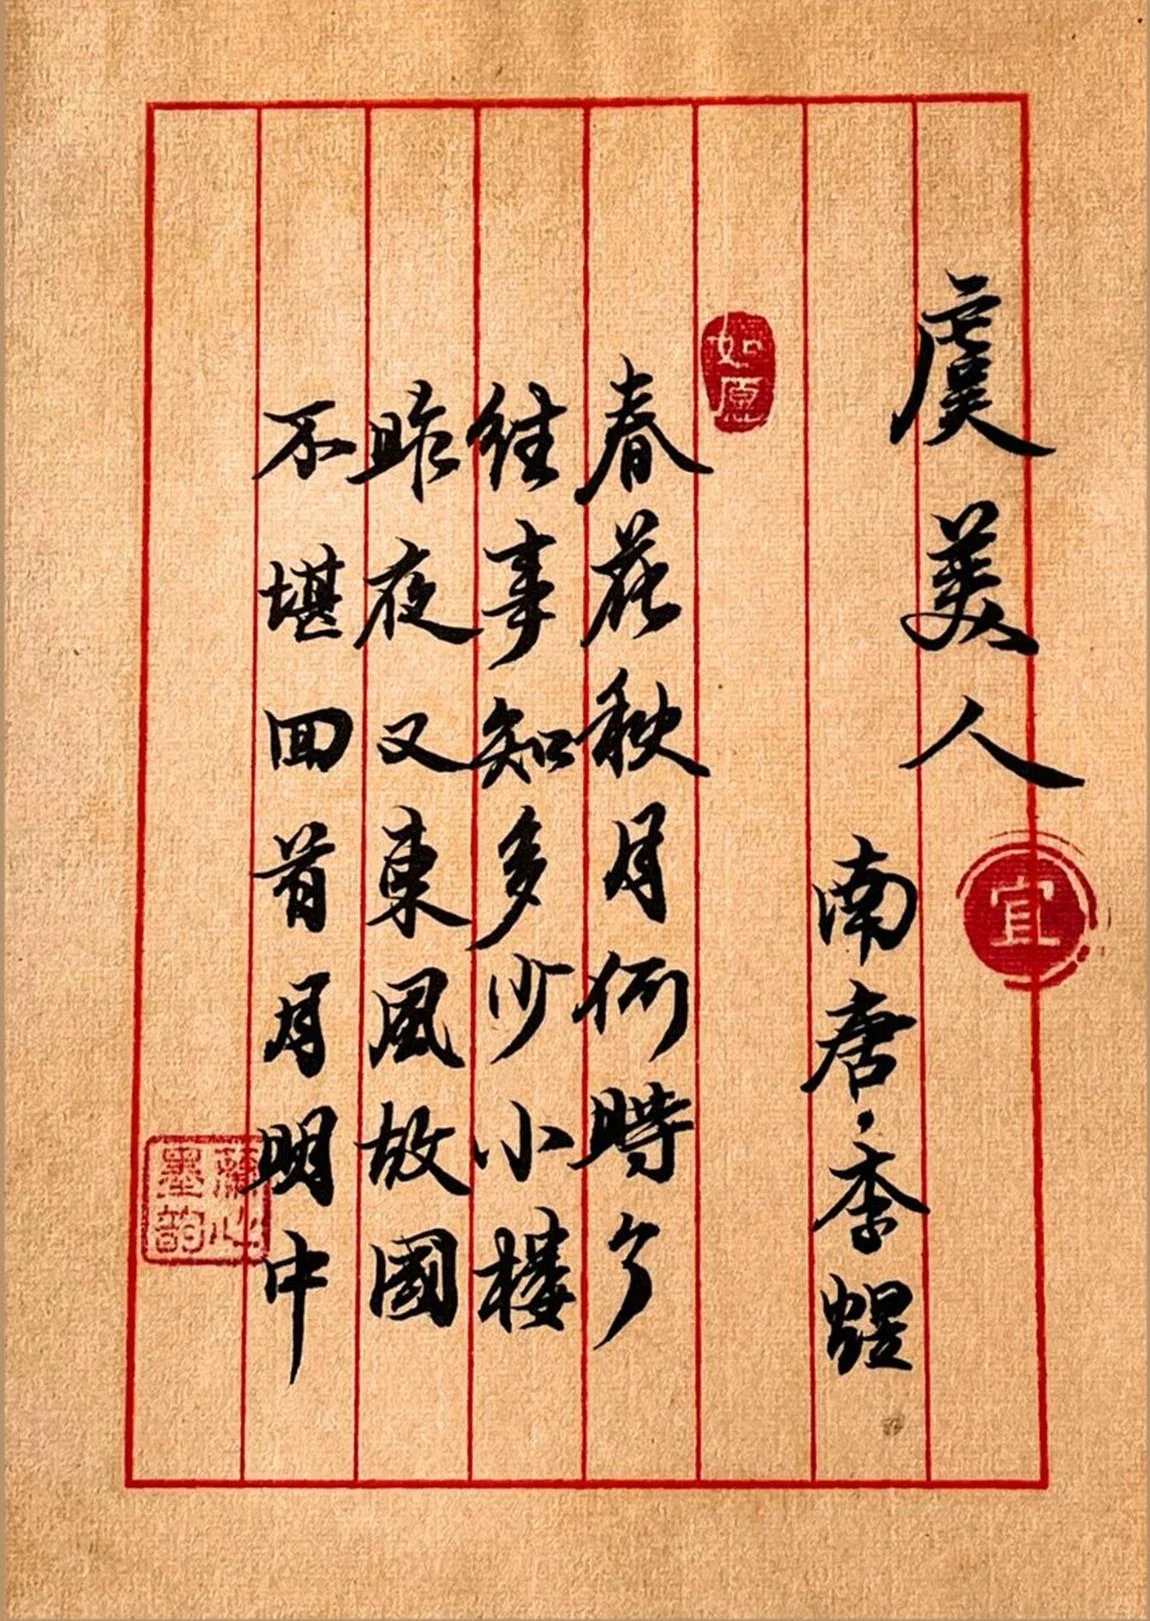 虞美人
南唐·李煜
春花秋月何時了
往事知多少小樓
昨夜又東風故國
不堪回首月明中
如愿
宜
蘭心
墨韵